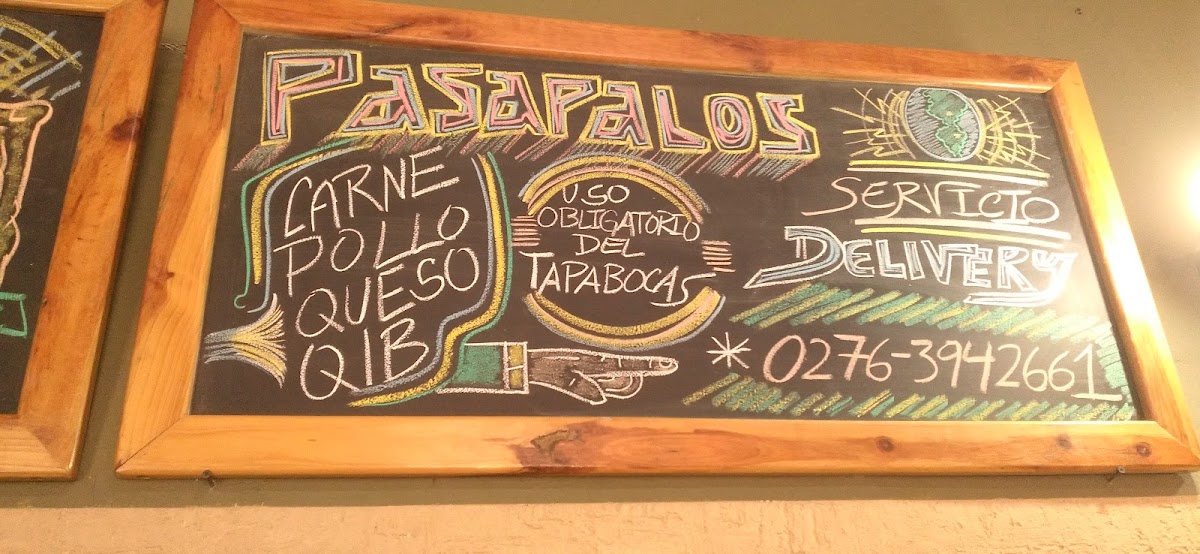 PASAPALOS
CARNE
POLLO
QUESO
QIB
USO
OBLIGATORIO
DEL
TAPABOCAS
SERVICIO
DELIVERY
* 0276-3942661